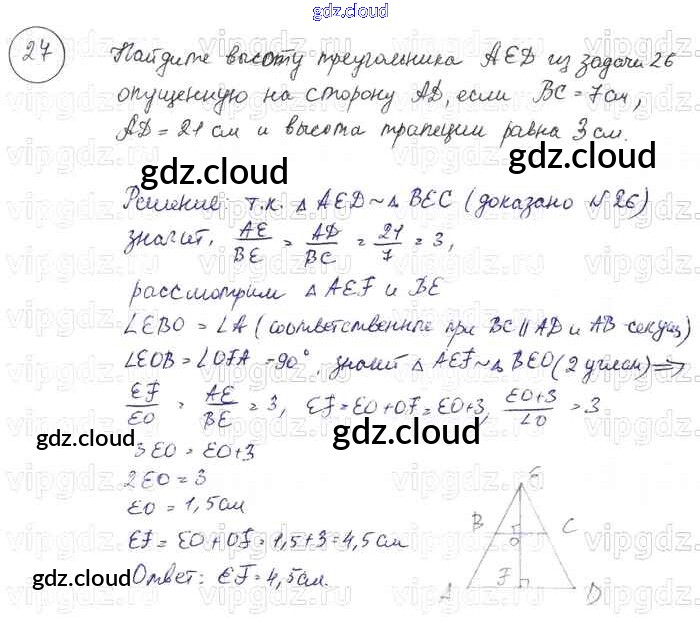 gdz.cloud
27
Найдите высоту треугольника AED из задачи 26
опущенную на сторону AD, если BC = 7 см,
AD = 21 см и высота трапеции равна 3 см.
gdz.cloud
gdz.cloud
Решение: т.к. △ AED ~ △ BEC (доказано №26)
значит, AE/BE = AD/BC = 21/7 = 3,
рассмотрим △ AEF и BE
∠EBO = ∠A (соответственные при BC || AD и AB-секущ)
∠EOB = ∠OFA = 90°, значит △ AEF ~ △ BEO (2 углам) ⇒
EF/EO = AE/BE = 3, EF = EO + OF = EO+3, EO+3/EO = 3
gdz.cloud
gdz.cloud
3EO = EO+3
2EO = 3
EO = 1,5см
EF = EO + OF = 1,5 + 3 = 4,5 см
gdz.cloud
gdz.cloud
Ответ: EF = 4,5 см.
E
B C
O
F
A D